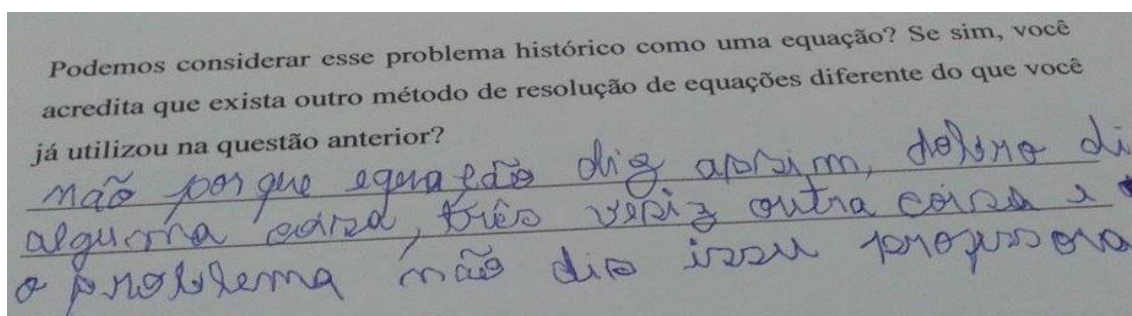 Podemos considerar esse problema histórico como uma equação? Se sim, você
acredita que exista outro método de resolução de equações diferente do que você
já utilizou na questão anterior?
não por que equação diz assim, dobro di
alguma coisa, três veziz outra coisa e
o problema não dis issu professora